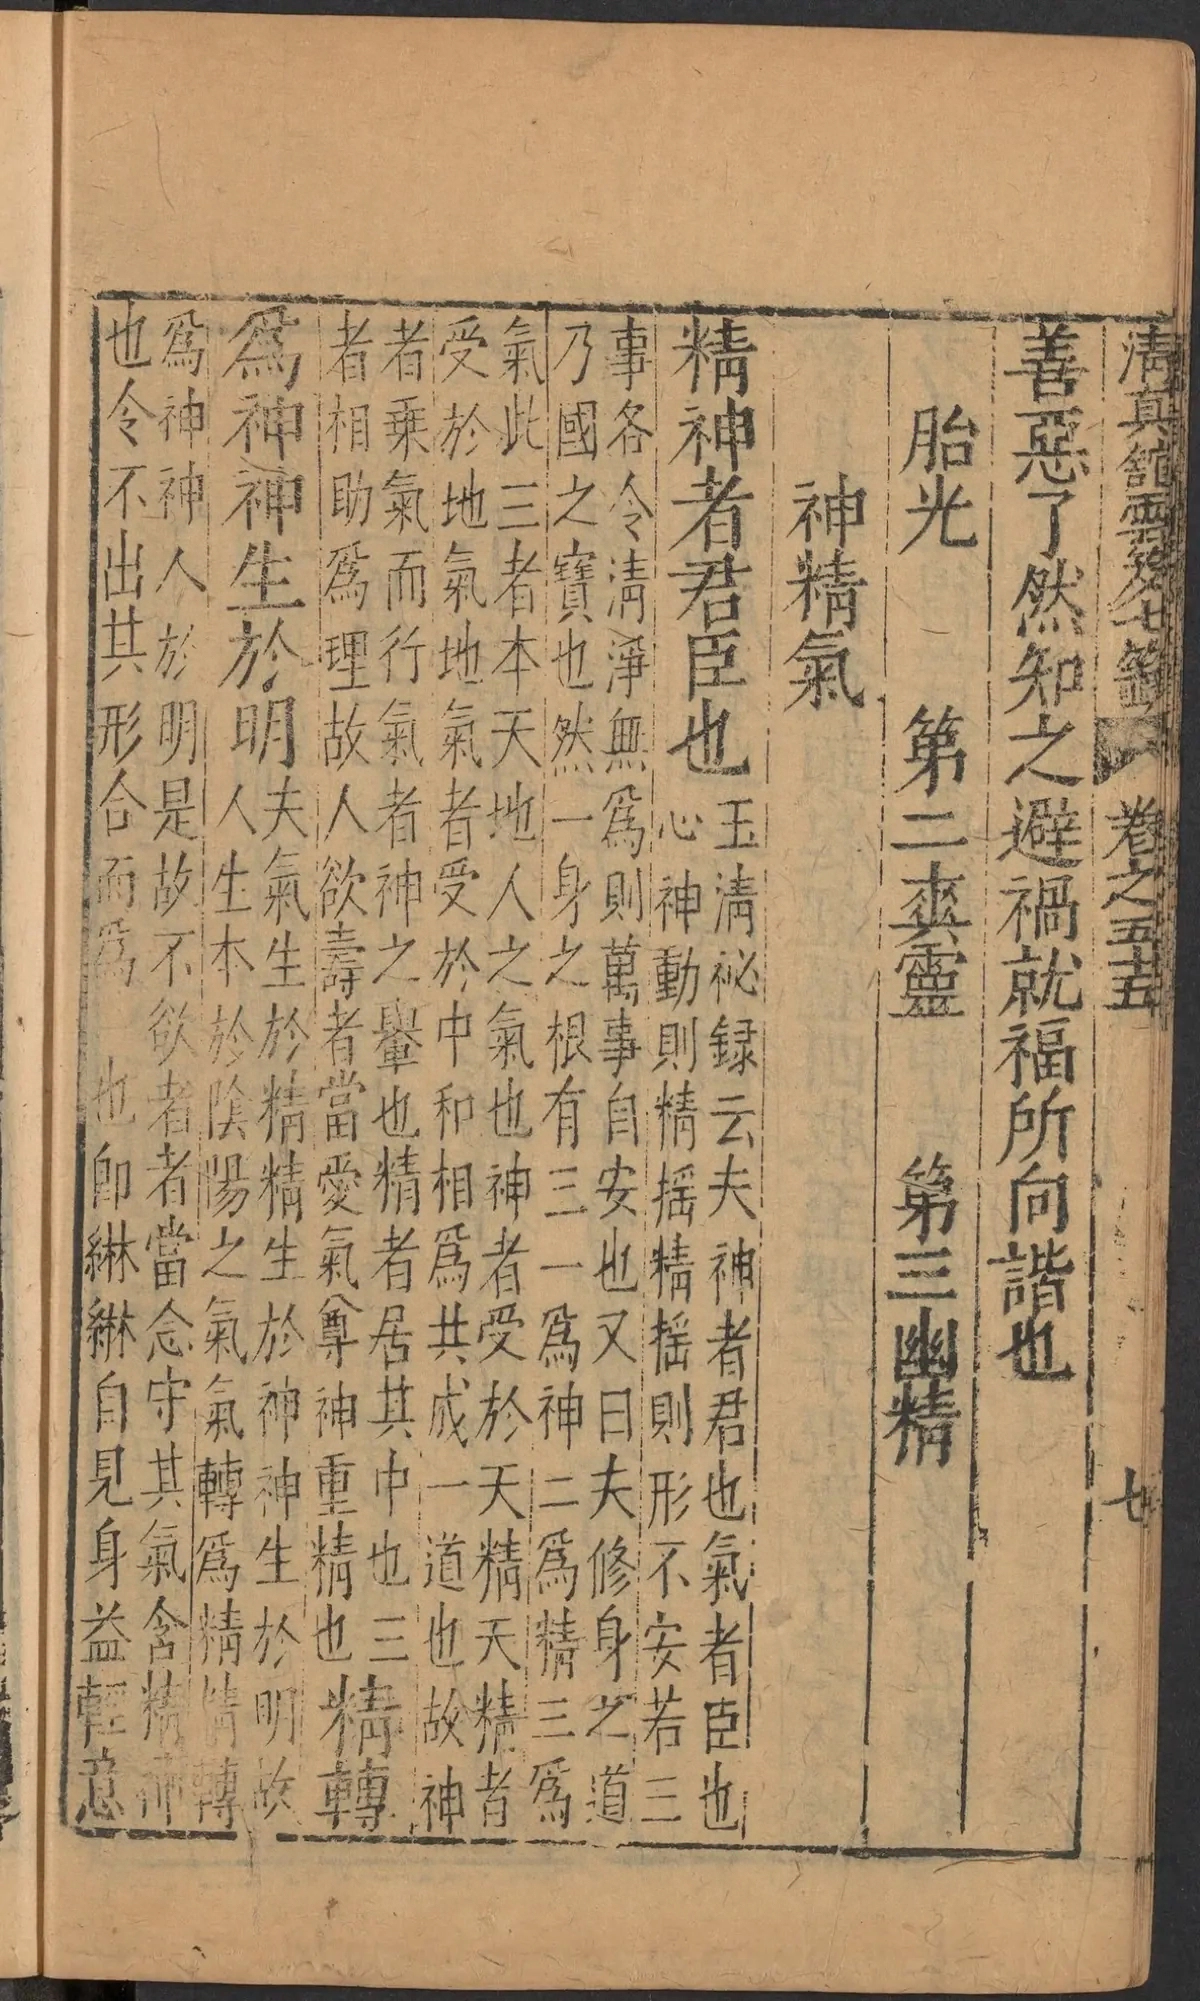 清真館雲笈七籤 卷之五十五 七
善惡了然知之避禍就福所向諧也
胎光 第二爽靈 第三幽精
神精氣
精神者君臣也
玉清祕録云夫神者君也氣者臣也
心神動則精揺精揺則形不安若三
事各令清淨無爲則萬事自安也又曰夫修身之道
乃國之寶也然一身之根有三一爲神二爲精三爲
氣此三者本天地人之氣也神者受於天精天精者
受於地氣地氣者受於中和相爲共成一道也故神
者乗氣而行氣者神之轝也精者居其中也三
者相助爲理故人欲壽者當愛氣尊神重精也
精轉
爲神神生於明
夫氣生於精精生於神神生於明故
人生本於陰陽之氣氣轉爲精精轉
爲神神人於明是故不欲者者當念守其氣含精神
也令不出其形合而爲 也即綝綝自見身益輕意